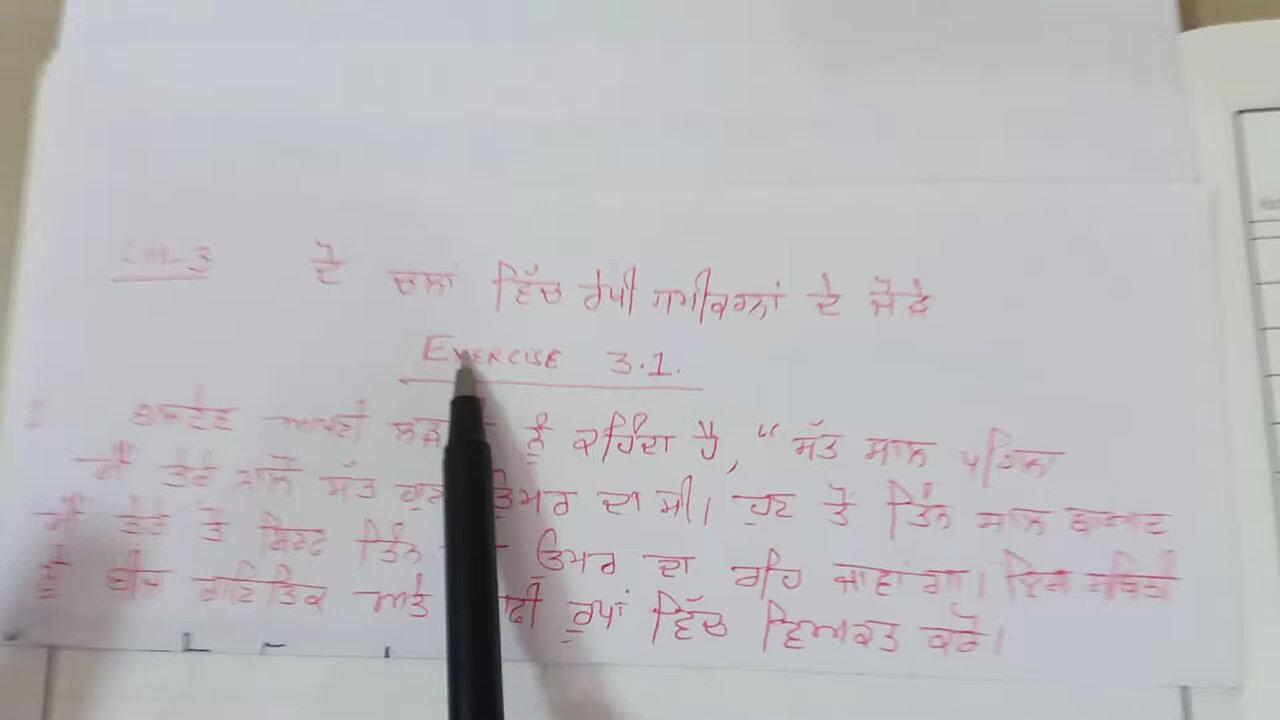 CH-3 ਦੋ ਚਲਾਂ ਵਿੱਚ ਰੇਖੀ ਸਮੀਕਰਨਾਂ ਦੇ ਜੋੜੇ
EXERCISE 3.1.
ਆਪਣੀ ਨੂੰ ਕਹਿੰਦਾ ਹੈ, “ਸੱਤ ਸਾਲ ਪਹਿਲਾਂ
ਮੈਂ ਤੇਰੇ ਨਾਲੋਂ ਸੱਤ ਉਮਰ ਦਾ ਸੀ। ਹੁਣ ਤੋਂ ਤਿੰਨ ਸਾਲ ਬਾਅਦ
ਮੈਂ ਤੇਰੇ ਤੋਂ ਸਿਰਫ ਤਿੰਨ ਉਮਰ ਦਾ ਰਹਿ ਜਾਵਾਂਗਾ। ਇਸ ਸਥਿਤੀ
ਨੂੰ ਬੀਜ ਗਣਿਤਿਕ ਅਤੇ ਰੂਪਾਂ ਵਿੱਚ ਵਿਅਕਤ ਕਰੋ।